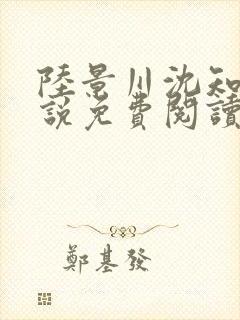 陸景川沈知
説免費閱讀
鄭基發